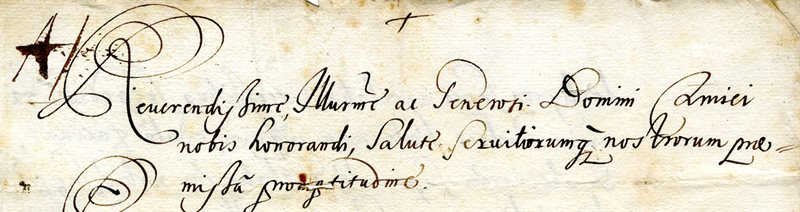 Reverendissime, Illurme ac Generosi Domini Amici
nobis honorandi, Salute Servitiorumq nostrorum præ=
missa promptitudine.